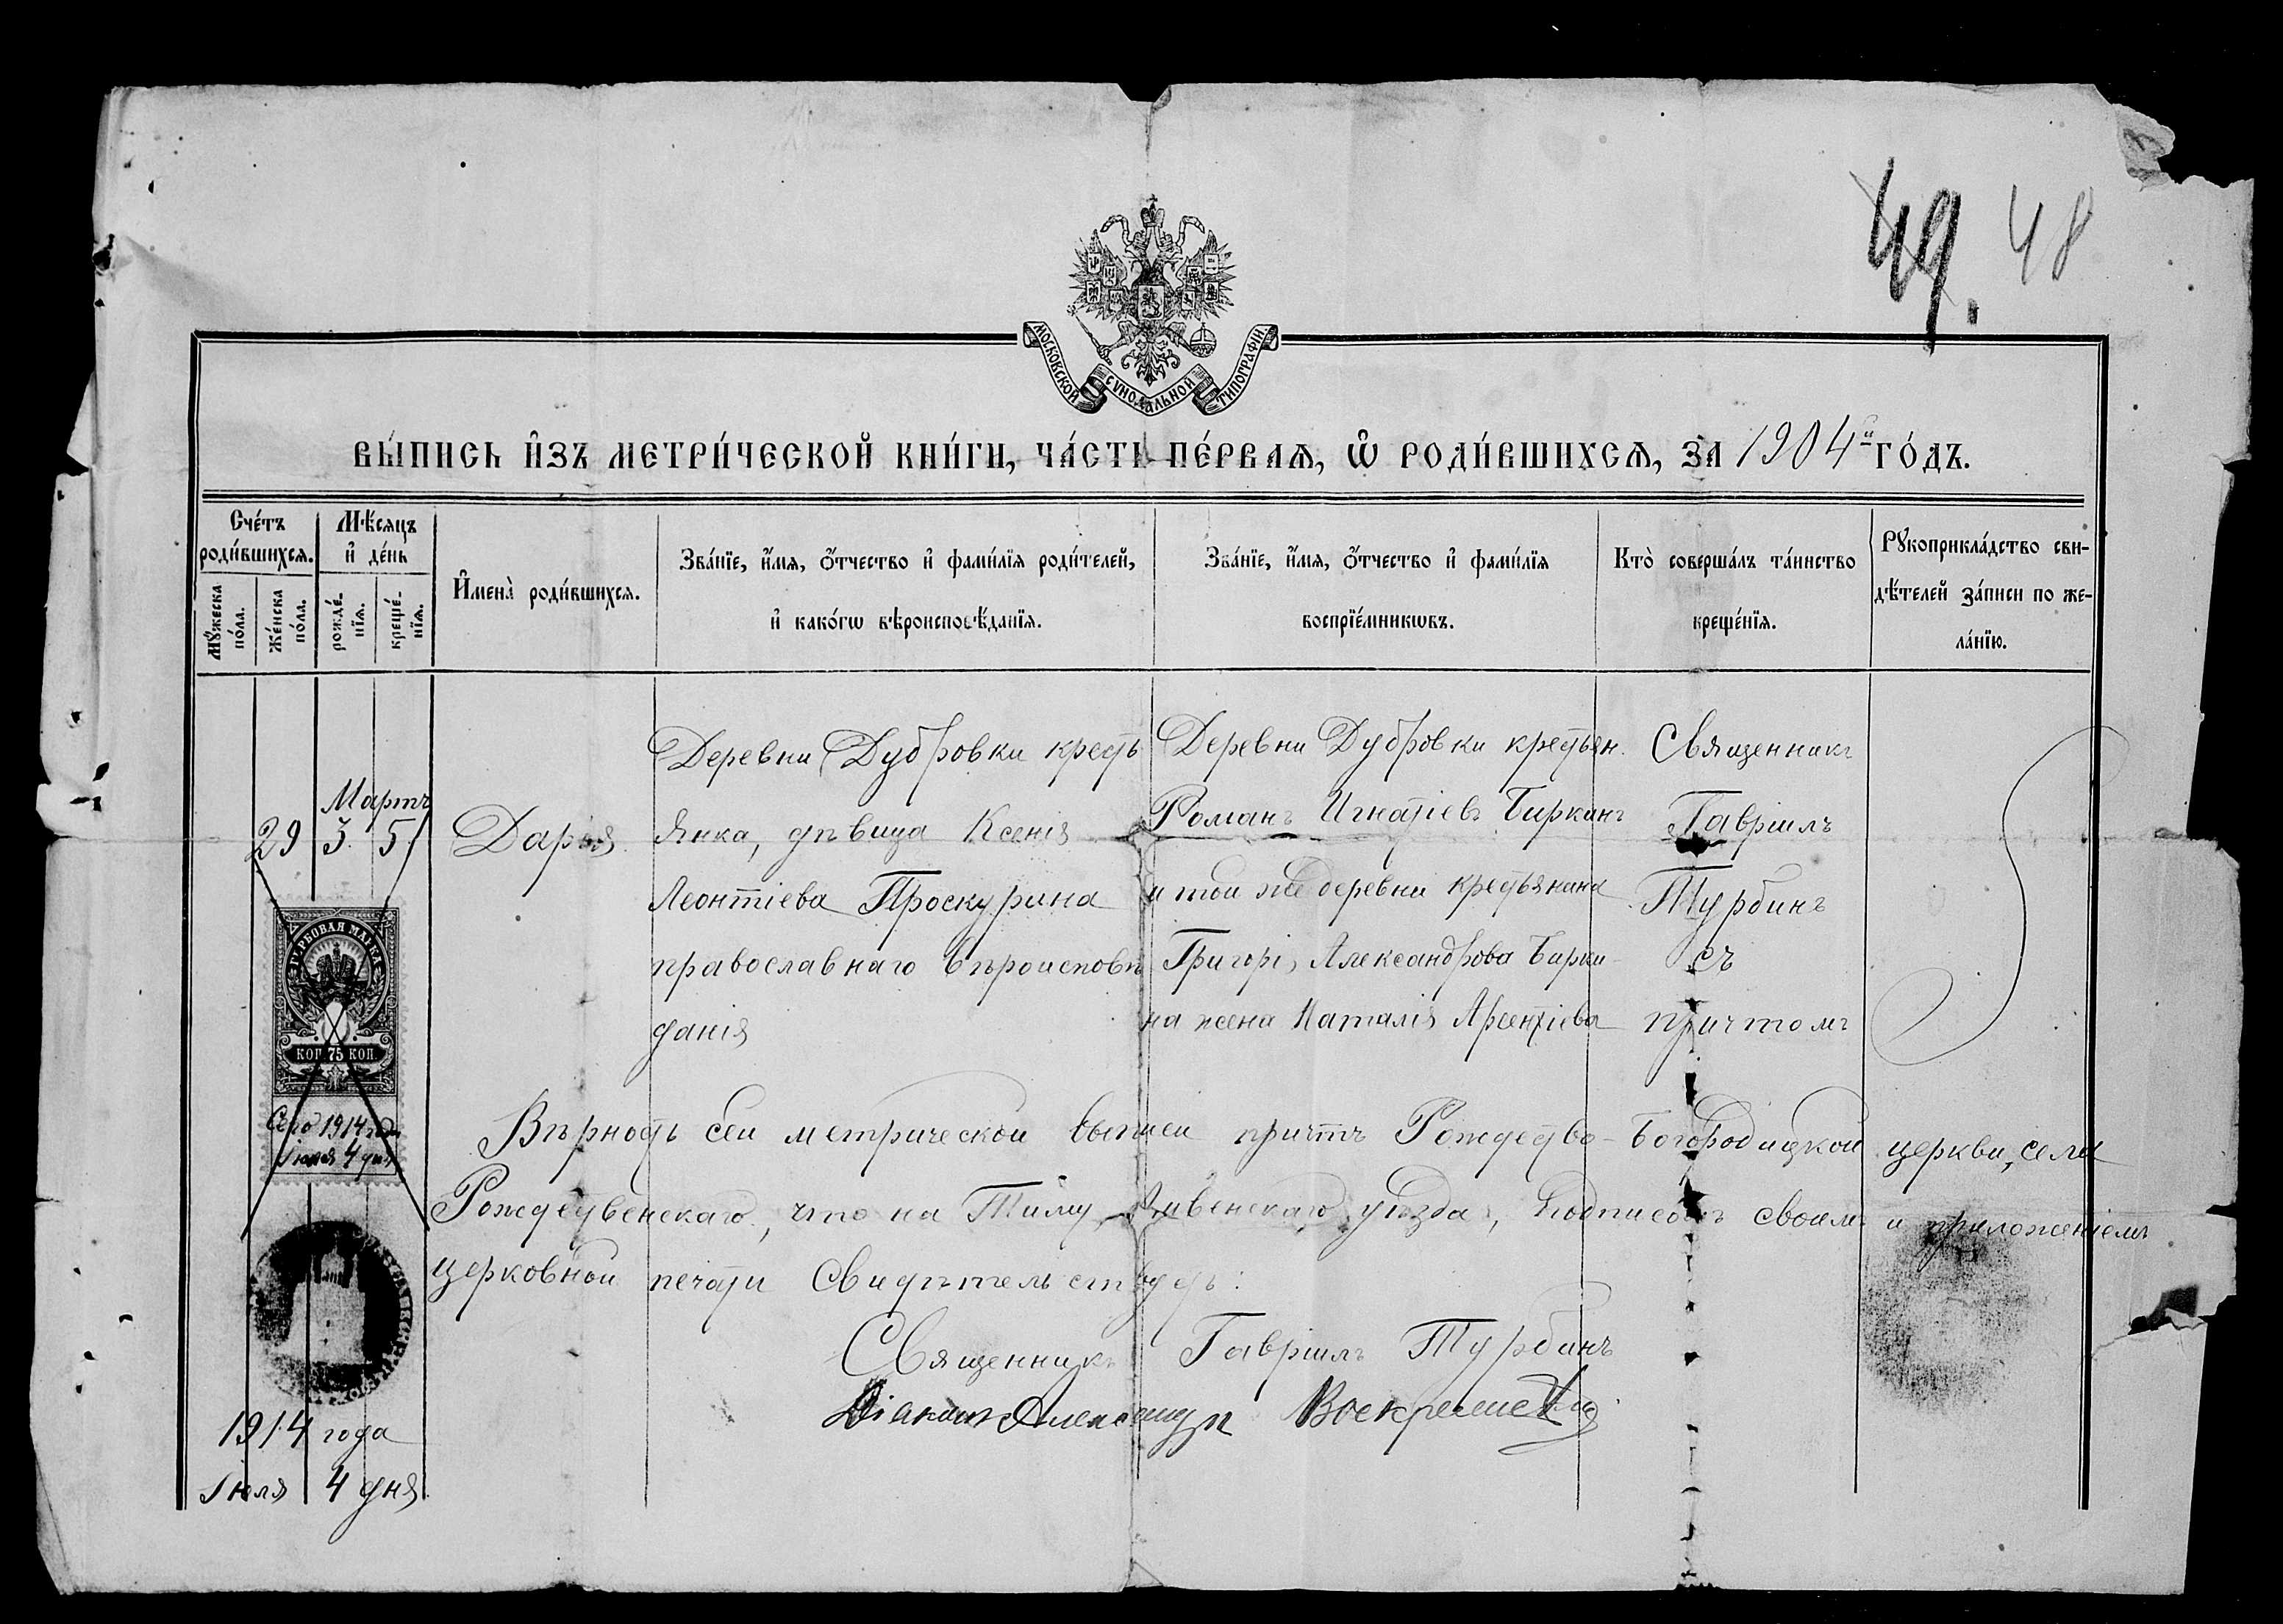 49. 48
МОСКОВСКОЙ СѴНОДАЛЬНОЙ ТИПОГРАФІИ.
ВЫ́ПИСЬ И҆ЗЪ МЕТРИ́ЧЕСКОЙ КНИ́ГИ, ЧА́СТЬ ПЕ́РВАѦ, Ѡ҆ РОДИ́ВШИХСѦ, ЗА 1904й ГО́ДЪ.
Сче́тъ
роди́вшихсѧ.
Мꙋ́жеска
по́ла.
Же́нска
по́ла.
Мѣ́сѧцъ
и҆ де́нь
рожде́-
нїѧ.
креще́-
нїѧ.
И҆мена̀ роди́вшихсѧ.
Зва́нїе, и҆́мѧ, ѻ҆́тчество и҆ фами́лїѧ роди́телей,
и҆ како́гѡ вѣроисповѣ́данїѧ.
Зва́нїе, и҆́мѧ, ѻ҆́тчество и҆ фами́лїѧ
воспрїе́мникѡвъ.
Кто̀ соверша́лъ та́инство
креще́нїѧ.
Рꙋкоприкла́дство сви-
дѣ́телей за́писи по же-
ла́нїю.
29
Мартъ
3. 5.
Дарія
Деревни Дубровки кресть
янка, дѣвица Ксенія
Леонтіева Проскурина
православнаго вѣроисповѣ
данія
Деревни Дубровки крестьян.
Романъ Игнатіевъ Биркинъ
и той же деревни крестьянина
Григорія Александрова Бирки-
на жена Наталія Арсентіева
Священникъ
Гавріилъ
Турбинъ
съ
причтомъ
ГЕРБОВАЯ МАРКА
КОП. 75 КОП.
Сего 1914 года
Іюля 4 дня
Вѣрность сей метрической выписи причтъ Рождество-Богородицкой церкви, села
Рождественскаго, что на Тиму, Ливенскаго уѣзда, подписомъ своимъ и приложеніемъ
церковной печати свидѣтельствуетъ:
Священникъ Гавріилъ Турбинъ
Діаконъ Александръ Воскресенскій
1914 года
Іюля 4 дня.